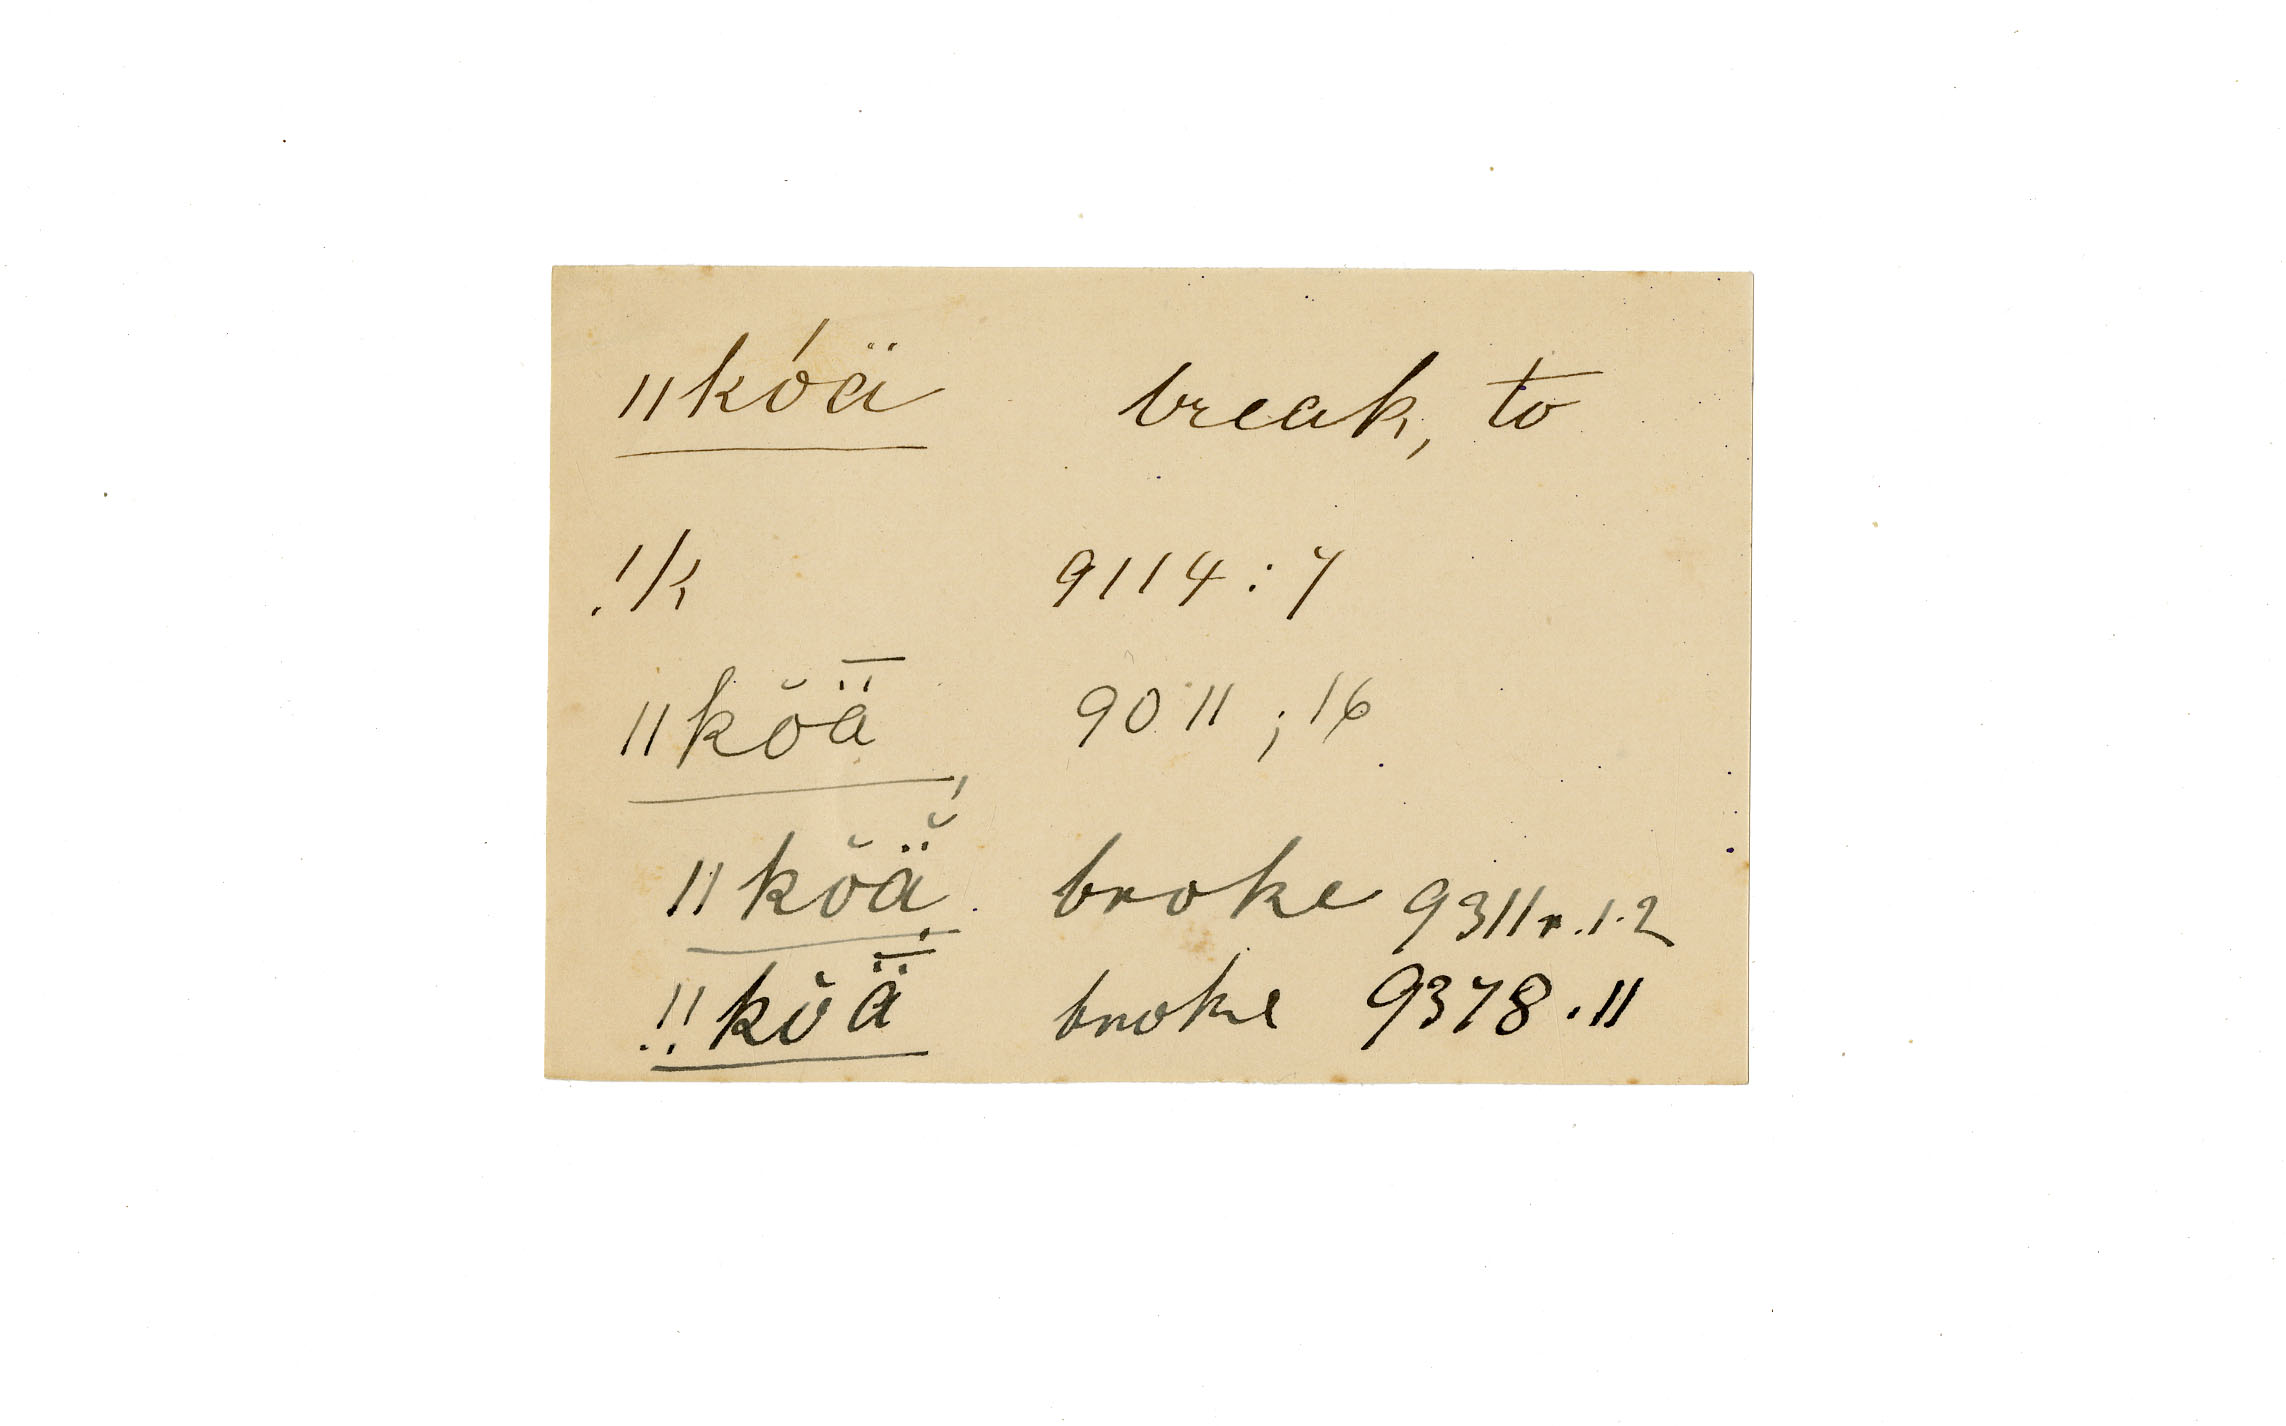 ǁkóä break, to
!/k 9114:7
ǁkŏǟ 9011;16
ǁkŏä̆́ broke 9311r.1.2
!!kŏǟ broke 9378.11